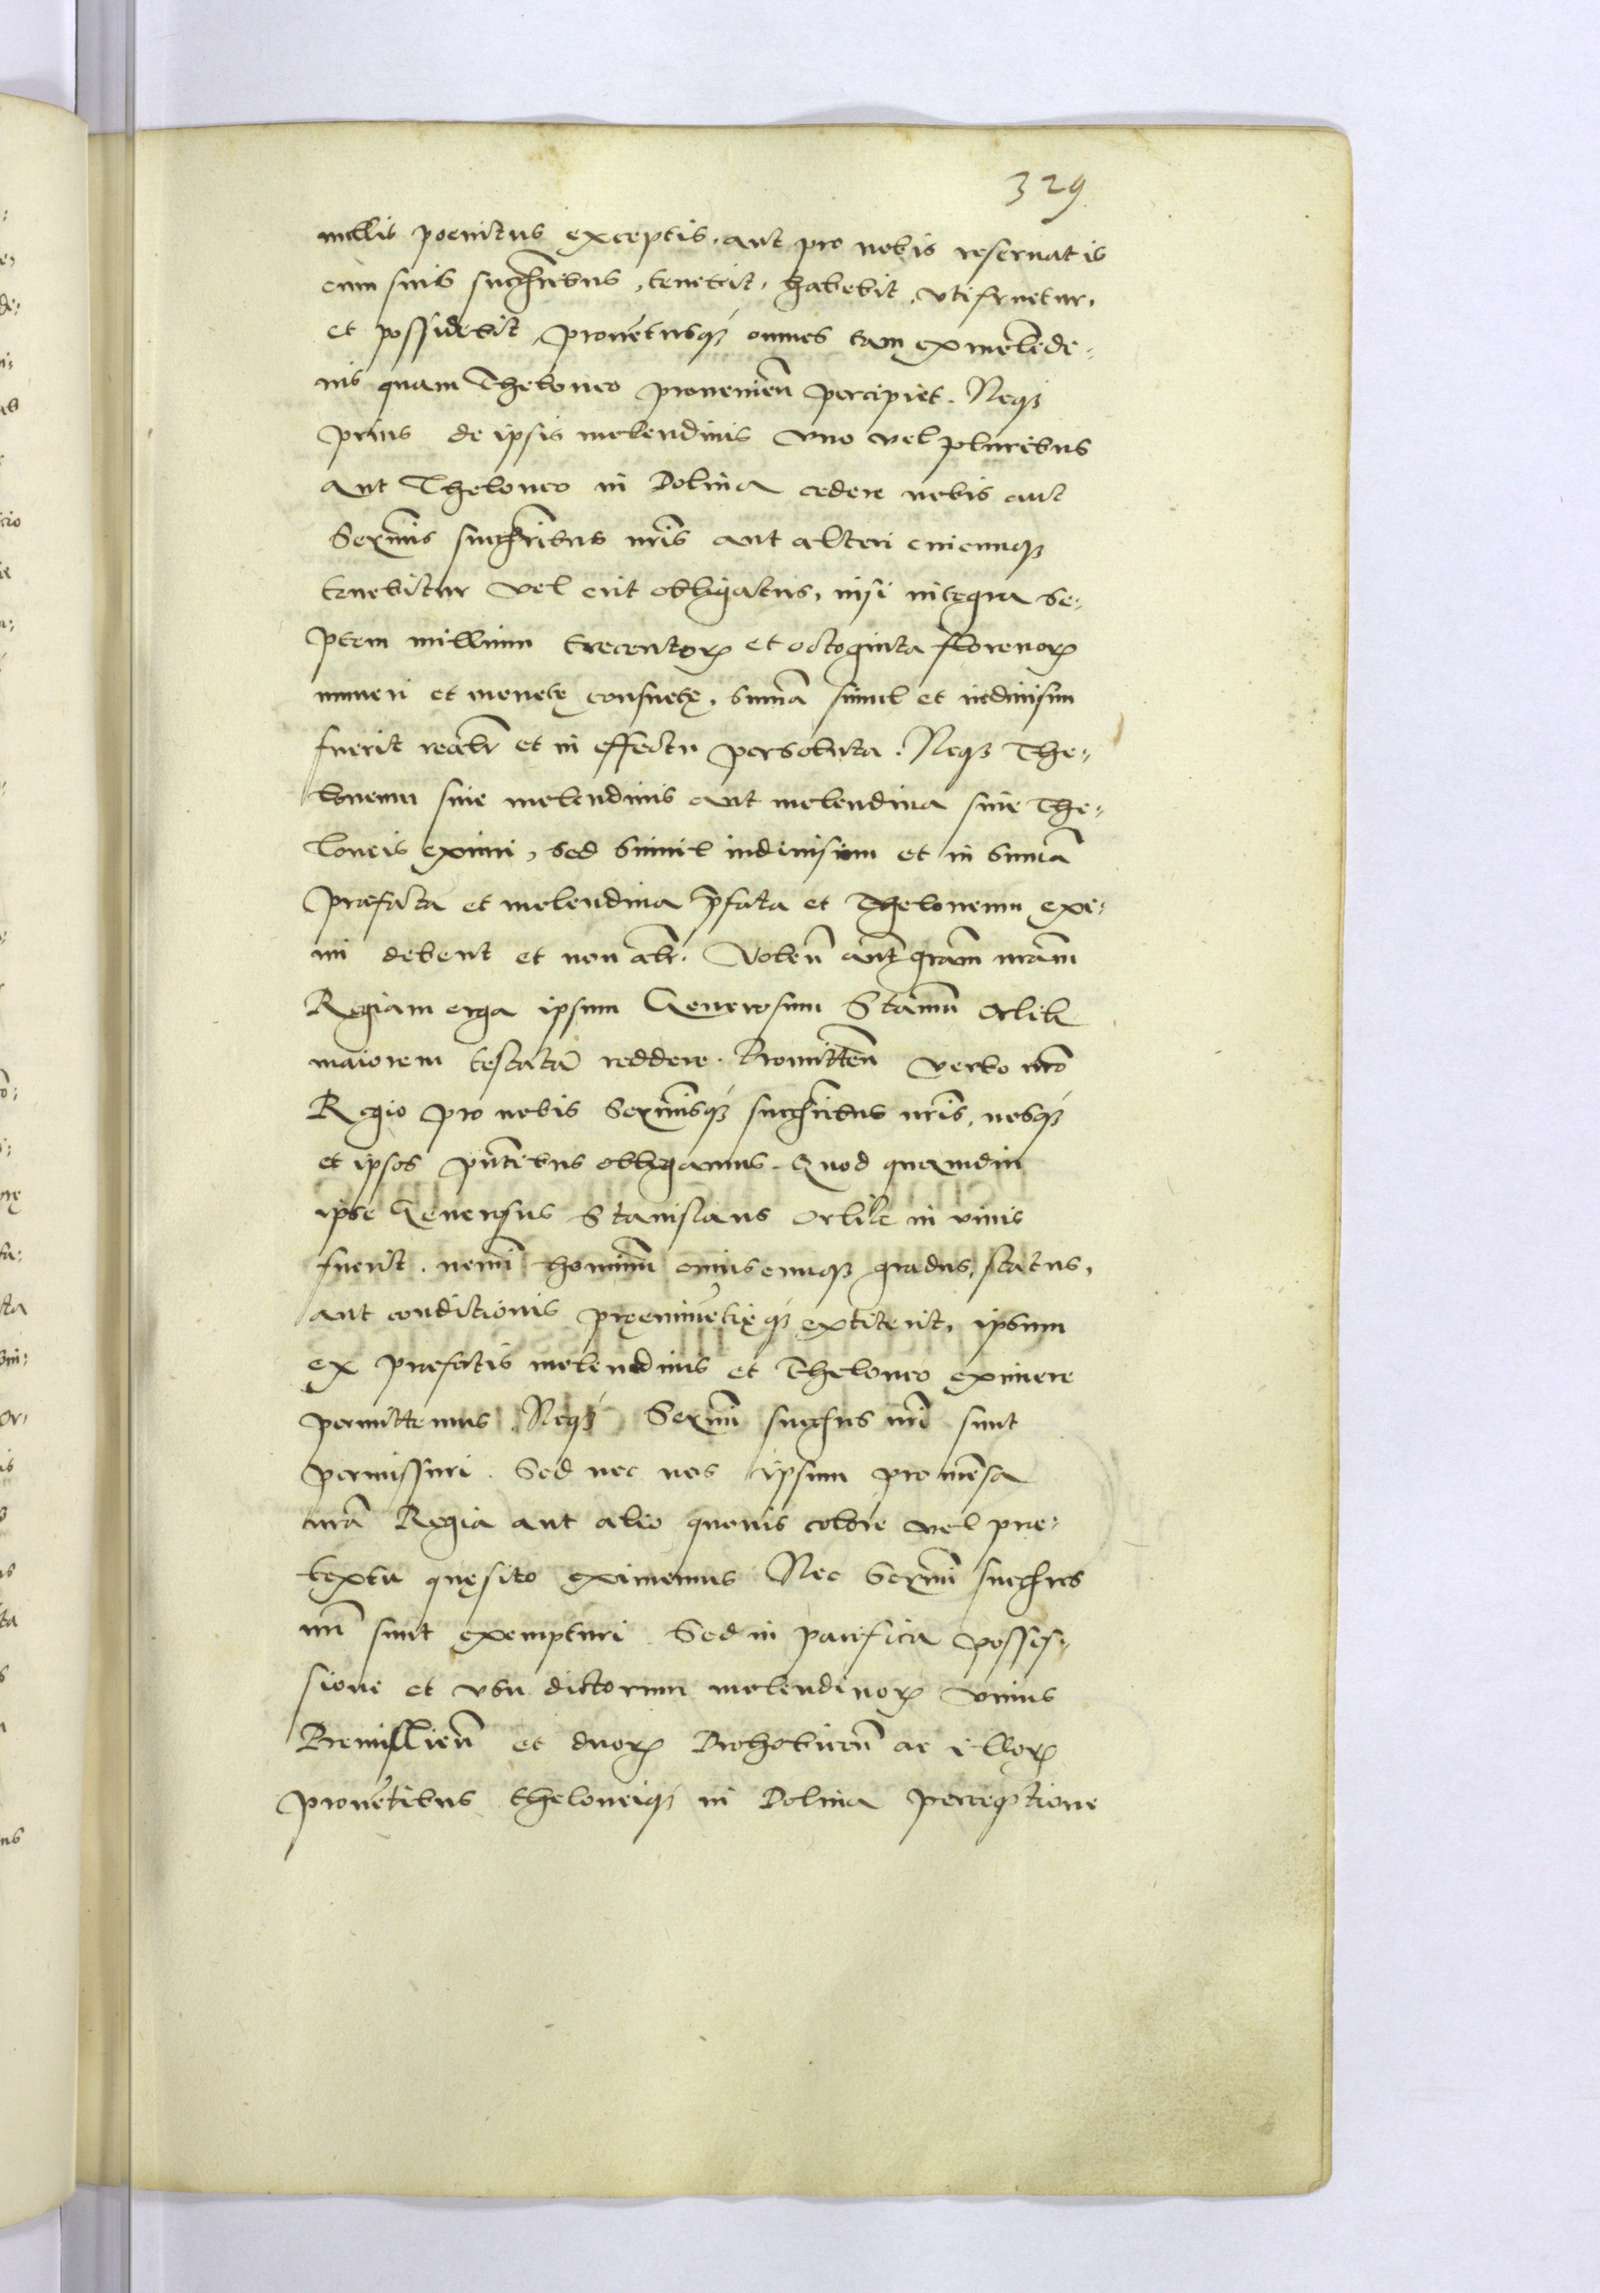 329
nullis poenitus exceptis, aut pro nobis reseruatis
cum suis succh̃ribus, tenebit, habebit, vtifruetur,
et possidebit, prouẽtusq́ꝫ omnes tam ex molẽde⸗
nis quam Theloneo prouenieñ percipiet. Neqꝫ
prius de ipsis molendinis vno vel pluribus
aut Theloneo in Dolina cedere nobis aut
Serm̃is succh̃ribus nr̃is aut alteri cuicumqꝫ
tenebitur vel erit obligatus, nisi integra se⸗
ptem millium trecentoꝝ et octoginta florenoꝝ
numeri et monetę consuetę, sum̃a simul et indiuisim
fuerit realr̃ et in effectu persoluta. Neqꝫ The⸗
loneum sine molendinis aut molendina sine The⸗
loneis eximi, sed simul indiuisim et in sum̃a
praefata et molendina p̃fata et Theloneum exi⸗
mi debent et non alr̃. Voleñ aũt gram̃ nram̃
Regiam erga ipsum Generosum Stanm̃ Orlik
maiorem testatã reddere. Promitteñ verbo nr̃o
Regio pro nobis Serm̃isq́ꝫ succh̃ribus nr̃is, nosq́ꝫ
et ipsos pñtibus obligamus. Quod quamdiu
ipse Generosus Stanislaus Orlik in viuis
fuerit, nemĩ hominũ cuiuscumqꝫ gradus, status,
aut conditionis pręeminẽtięq́ꝫ extiterit, ipsum
ex praefatis molendinis et Theloneo eximere
permittemus. Neqꝫ Serm̃i succh̃res nr̃i sunt
permissuri. Sed nec nos ipsum pro mẽsa
nr̃a Regia aut alio quouis colore vel prae⸗
textu quęsito eximemus. Nec Serm̃i succh̃res
nr̃i sunt exempturi. Sed in pacifica posses⸗
sione et vsu dictorum molendinoꝝ vnius
Premislieñ et duoꝝ Drohobicẽñ ac illoꝝ
prouẽtibus theloneiqꝫ in Dolina perceptione